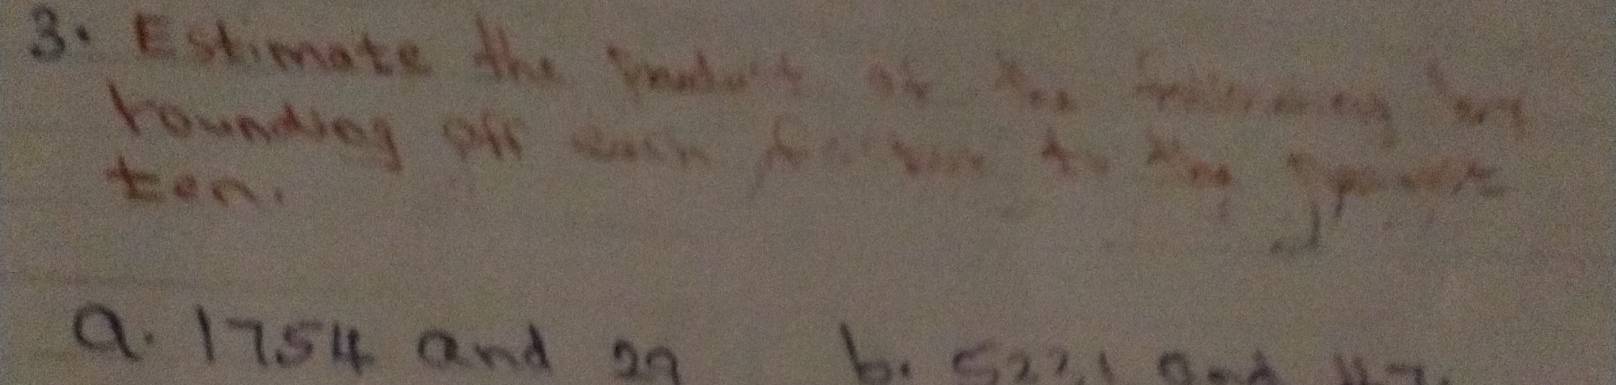 3. Estimate the product of the following by
rounding off each to the
ten.
a. 1754 and 29 b. 5221 and 47